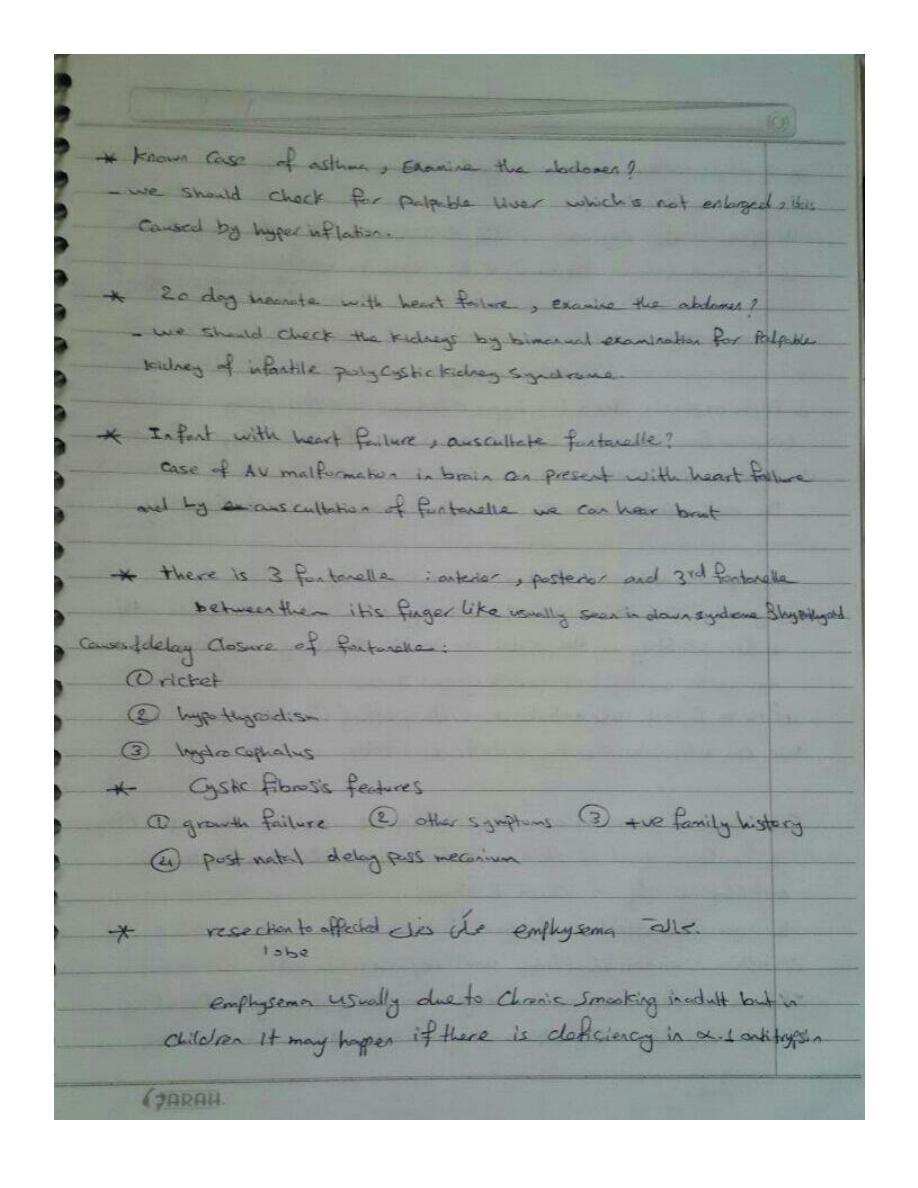 * Known Case of asthma, Examine the abdomen?
- we should check for palpable liver which is not enlarged, it is
Caused by hyperinflation.
* 20 day neonate with heart failure, examine the abdomen?
- we should check the kidneys by bimanual examination for Palpable
kidney of infantile polycystic kidney syndrome.
* Infant with heart failure, auscultate fontanelle?
Case of AV malformation in brain can present with heart failure
and by auscultation of funtanelle we can hear bruit
* there is 3 fontanelle : anterior, posterior and 3rd fontanelle
between them it is finger like usually seen in down syndrome & hypothyroid
Causes of delay Closure of fontanelle:
① ricket
② hypothyroidism
③ hydrocephalus
* Cystic fibrosis features
① growth failure ② other symptoms ③ +ve family history
④ post natal delay pass meconium
* resection to affected emphysema
lobe
emphysema usually due to Chronic Smooking in adult but in
children It may happen if there is deficiency in α-1 antitrypsin
SARAH